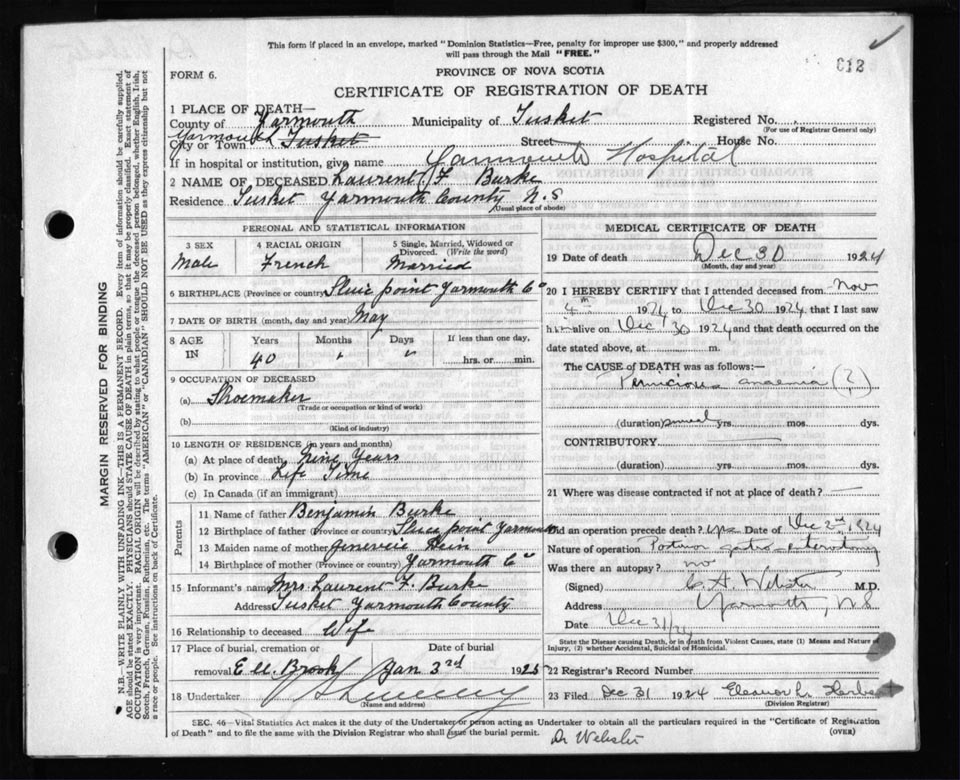 This form if placed in an envelope, marked "Dominion Statistics—Free, penalty for improper use $300," and properly addressed
will pass through the Mail "FREE."
FORM 6.
PROVINCE OF NOVA SCOTIA
612
CERTIFICATE OF REGISTRATION OF DEATH
1 PLACE OF DEATH—
County of Yarmouth Municipality of Tusket Registered No.
(For use of Registrar General only)
Yarmouth
City or Town Tusket Street House No.
If in hospital or institution, give name Yarmouth Hospital
2 NAME OF DECEASED Laurent F Burke
Residence Tusket Yarmouth County N.S
(Usual place of abode)
PERSONAL AND STATISTICAL INFORMATION
3 SEX 4 RACIAL ORIGIN 5 Single, Married, Widowed or Divorced. (Write the word)
Male French Married
6 BIRTHPLACE (Province or country) Sluice point Yarmouth Co
7 DATE OF BIRTH (month, day and year) May
8 AGE IN Years Months Days If less than one day,
40 " " hrs. or min.
9 OCCUPATION OF DECEASED
(a) Shoemaker
(Trade or occupation or kind of work)
(b)
(Kind of industry)
10 LENGTH OF RESIDENCE (in years and months)
(a) At place of death Nine Years
(b) In province Life Time
(c) In Canada (if an immigrant)
Parents
11 Name of father Benjamin Burke
12 Birthplace of father (Province or country) Sluice point Yarmouth
13 Maiden name of mother
14 Birthplace of mother (Province or country) Yarmouth Co
15 Informant's name Mrs Laurent F. Burke
Address Tusket Yarmouth County
16 Relationship to deceased Wife
17 Place of burial, cremation or removal Date of burial
Eel Brook Jan 3rd 1925
18 Undertaker
(Name and address)
MEDICAL CERTIFICATE OF DEATH
19 Date of death Dec 30 1924
(Month, day and year)
20 I HEREBY CERTIFY that I attended deceased from Nov
4th 1924 to Dec 30 1924 that I last saw
him alive on Dec 30 1924 and that death occurred on the
date stated above, at m.
The CAUSE OF DEATH was as follows:—
Pernicious anaemia (?)
(duration) yrs. mos. dys.
CONTRIBUTORY
(duration) yrs. mos. dys.
21 Where was disease contracted if not at place of death?
Did an operation precede death? yes Date of Dec 2nd, 1924
Nature of operation Posterior gastro enterostomy
Was there an autopsy? no
(Signed) C A Webster M.D.
Address Yarmouth, N.S
Date Dec 31/24
State the Disease causing Death, or in death from Violent Causes, state (1) Means and Nature of
Injury, (2) whether Accidental, Suicidal or Homicidal.
22 Registrar's Record Number
23 Filed Dec 31 1924 Eleanor L.
(Division Registrar)
SEC. 46—Vital Statistics Act makes it the duty of the Undertaker or person acting as Undertaker to obtain all the particulars required in the "Certificate of Registration
of Death" and to file the same with the Division Registrar who shall issue the burial permit.
(OVER)
Dr Webster
MARGIN RESERVED FOR BINDING
N.B.—WRITE PLAINLY WITH UNFADING INK—THIS IS A PERMANENT RECORD. Every item of information should be carefully supplied.
AGE should be stated EXACTLY. PHYSICIANS should STATE CAUSE OF DEATH in plain terms, so that it may be properly classified. Exact statement of
OCCUPATION is very important. RACIAL ORIGIN will be described by stating to what people or tongue the deceased person belonged, whether English, Irish,
Scotch, French, German, Russian, Ruthenian, etc. The terms "AMERICAN" or "CANADIAN" SHOULD NOT BE USED as they express citizenship but not
a race or people. See instructions on back of Certificate.